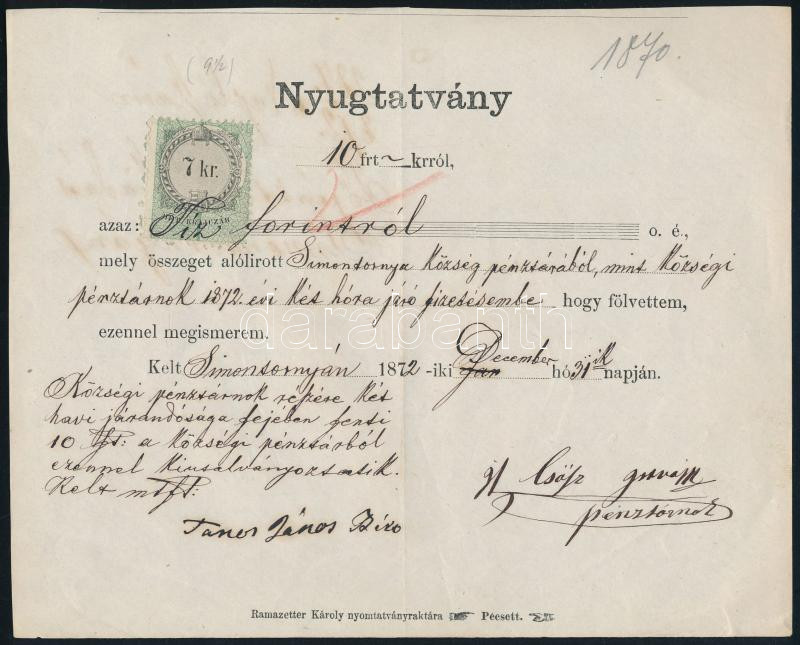 1870.
(9½)
Nyugtatvány
7 kr.
10 frt ~ krról,
azaz: Tiz forintról o. é.,
mely összeget alólirott Simontornya Község pénztárából, mint Községi
pénztárnok 1872. évi két hóra járó fizetésembe hogy fölvettem,
ezennel megismerem.
Kelt Simontornyán 1872-iki Jan December hó 31ik napján.
Községi pénztárnok részére két
havi járandósága fejében fenti
10 ft: a községi pénztárból
ezennel kiutalványoztatik.
Kelt mt ft:
János Biro
pénztárnok
darabanth
Ramazetter Károly nyomtatványraktára Pécsett.